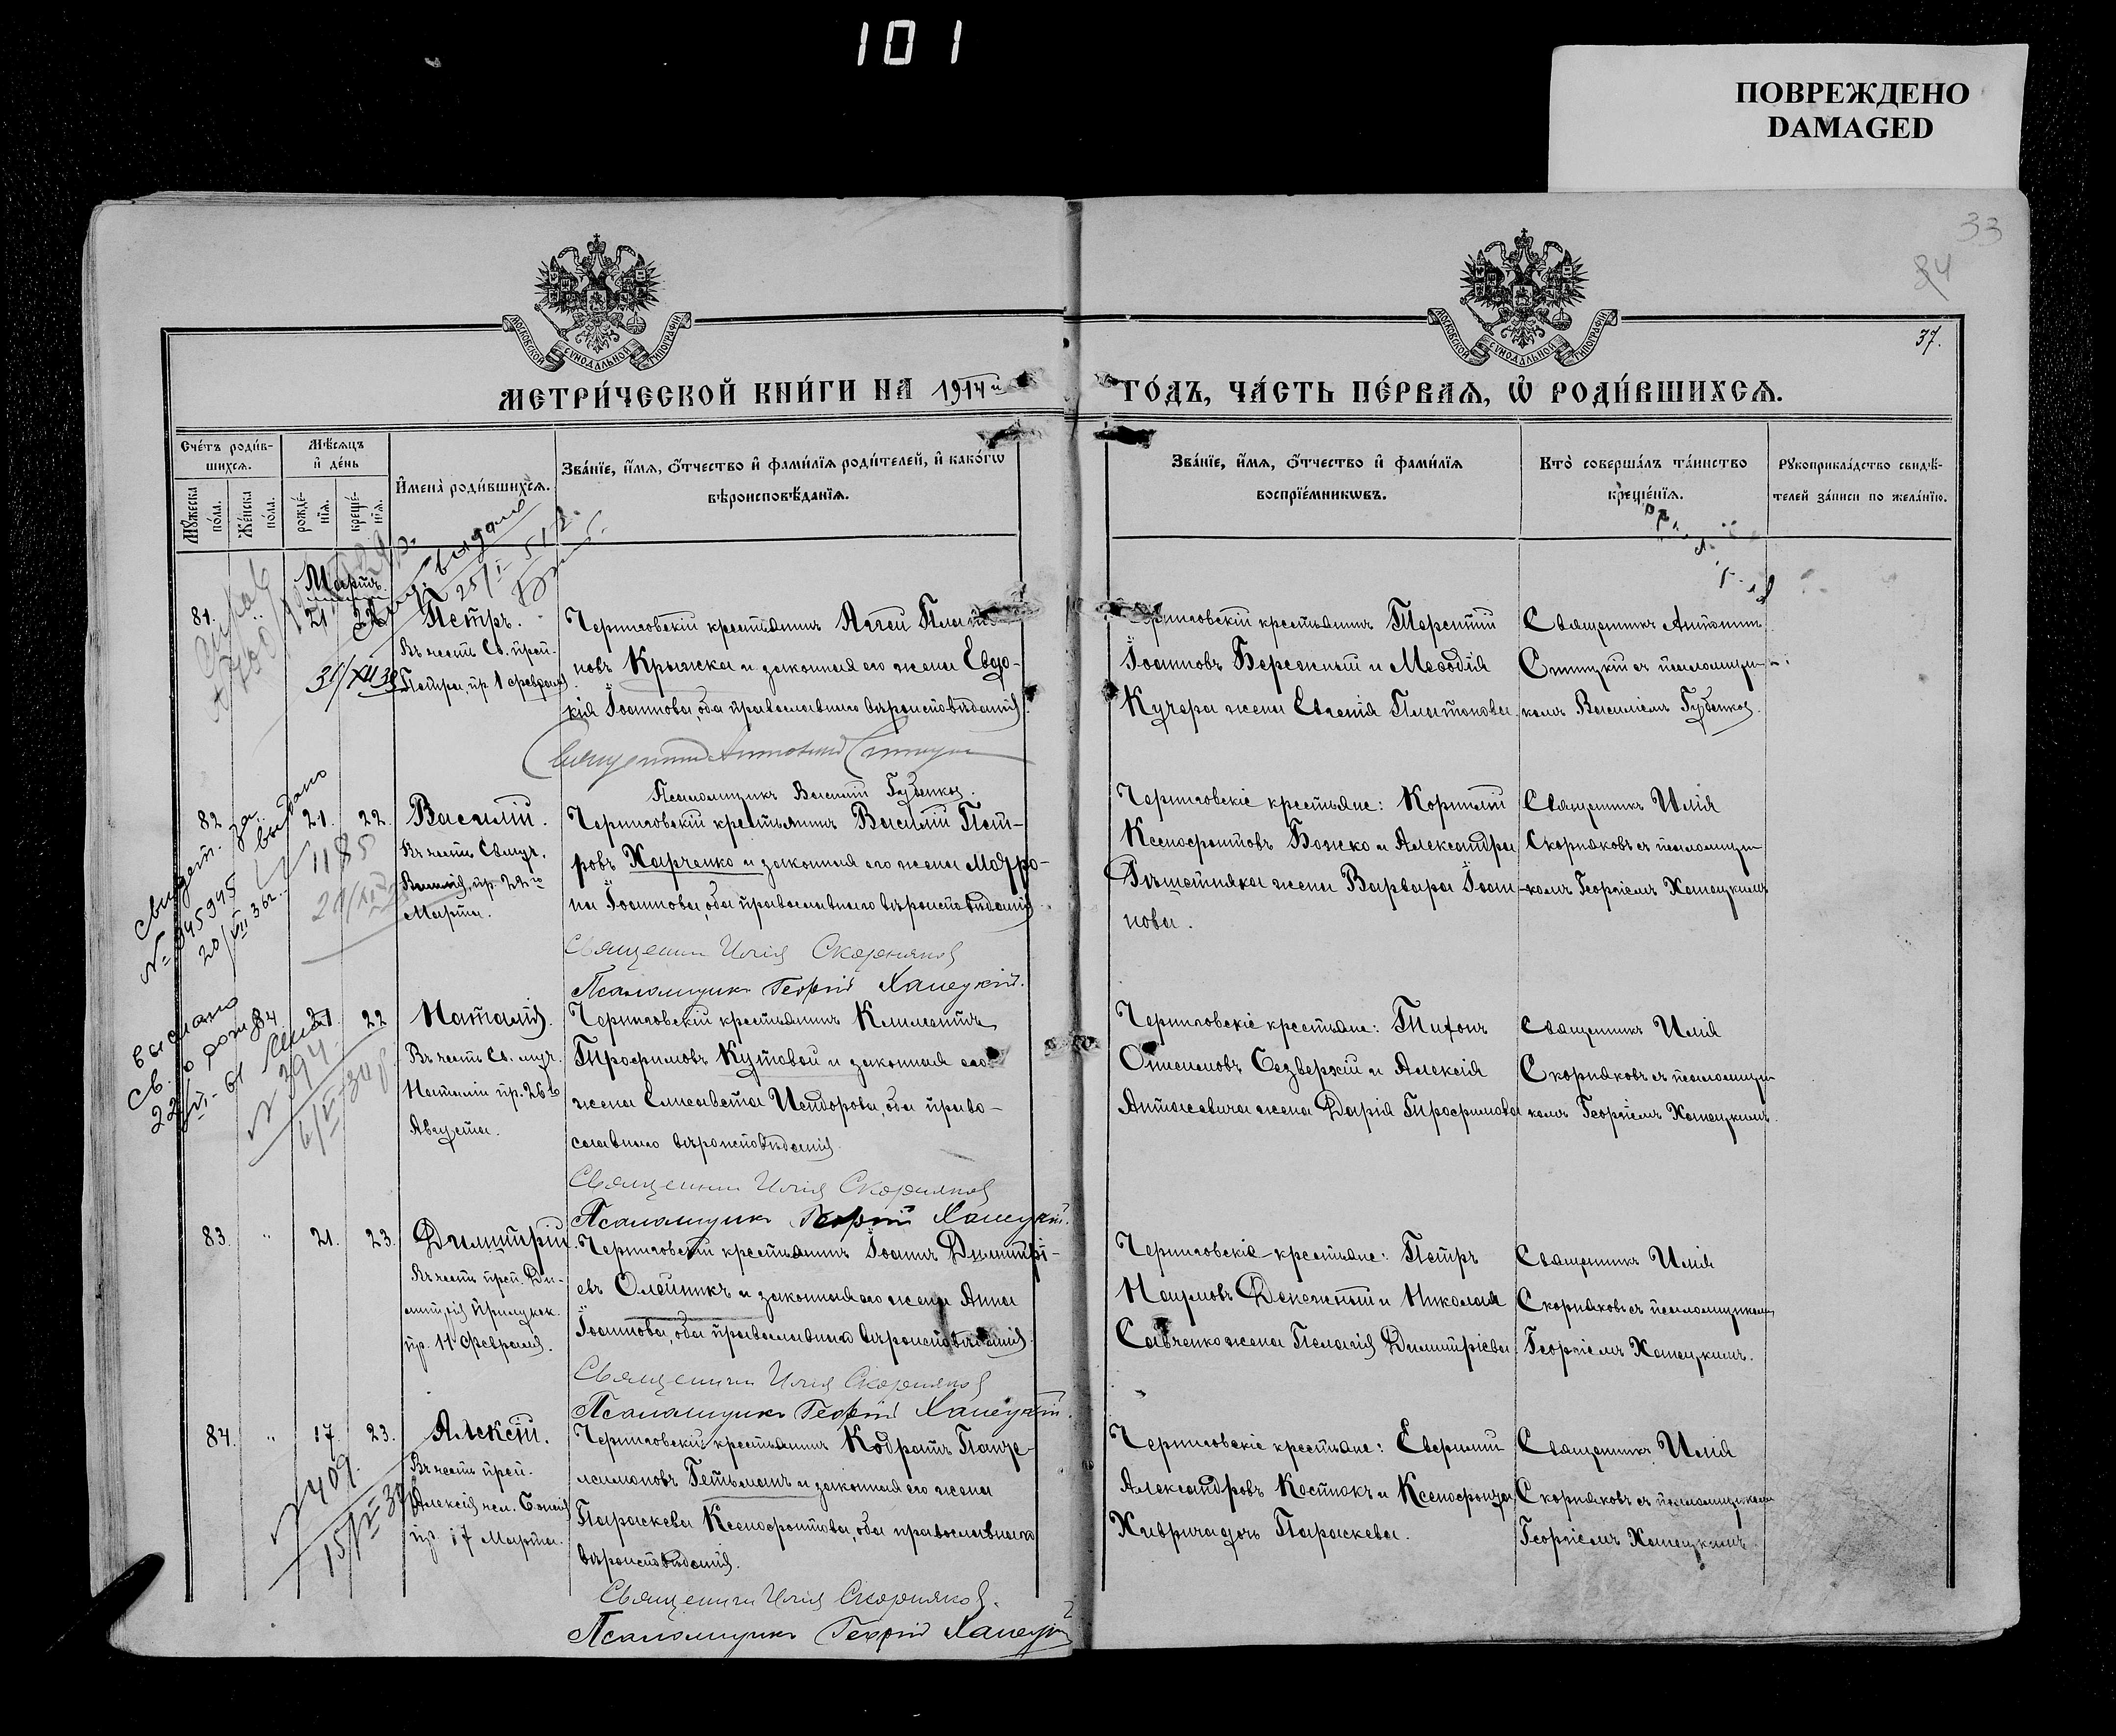 101
ПОВРЕЖДЕНО
DAMAGED
33
84
37.
МОСКОВСКОЙ СѴНОДАЛЬНОЙ ТИПОГРАФІИ
МОСКОВСКОЙ СѴНОДАЛЬНОЙ ТИПОГРАФІИ
МЕТРИ́ЧЕСКОЙ КНИ́ГИ НА 1914й ГО́ДЪ, ЧА́СТЬ ПЕ́РВАѦ, Ѡ҆ РОДИ́ВШИХСѦ.
Сче́тъ роди́в-
шихсѧ.
Мꙋ́жеска по́ла.
Же́нска по́ла.
Мѣ́сѧцъ
и҆ де́нь
рожде́-
нїѧ.
креще́-
нїѧ.
И҆мена̀ роди́вшихсѧ.
Зва́нїе, и҆́мѧ, ѻ҆́тчество и҆ фами́лїѧ роди́телей, и҆ како́гѡ
вѣроисповѣ́данїѧ.
Зва́нїе, и҆́мѧ, ѻ҆́тчество и҆ фами́лїѧ
воспрїе́мникѡвъ.
Кто̀ соверша́лъ та́инство
креще́нїѧ.
Рꙋкоприкла́дство свидѣ́-
телей за́писи по жела́нїю.
Мартъ
81. " 21 22
Петръ.
Въ честь Св. преп.
Петра, пр. 1 февраля
31/XII 38
25/I 51 г.
Черниговскій крестьянинъ Аггей Плато
новъ Крыжка и законная его жена Евдо-
кія Іоаннова, оба православнаго вѣроисповѣданія.
Священникъ Антоній
Псаломщикъ Василій Губенко.
крестьянинъ Терентій
Іоанновъ Бережный и Меѳодія
Кучера жена Евгенія Платонова.
Священникъ Антоній
Синицкій съ псаломщи-
комъ Василіемъ Губенко.
82 21. 22.
Василій.
Въ честь Свмуч.
Василія, пр. 22го
Марта.
свидет. за
№ 945945 выдано
20/VII 36 г.
1185
Черниговскій крестьянинъ Василій Пет-
ровъ Харченко и законная его жена Матро-
на Іоаннова, оба православнаго вѣроисповѣданія
Священникъ Илія Скорняковъ
Псаломщикъ Георгій Ханецкій.
Черниговскіе крестьяне: Корнилій
Ксенофонтовъ Божко и Александра
жена Варвара Іоан-
нова.
Священникъ Илія
Скорняковъ съ псаломщи-
комъ Георгіемъ Ханецкимъ
21. 22
Наталія.
Въ честь Св. муч.
Наталіи пр. 26го
Августа.
выслано
Св. о рожд
22/VI-61
№ 394
6/II-30 г.
Черниговскій крестьянинъ Климентъ
Трофимовъ Кутовой и законная его
жена Елисавета Исидорова, оба право-
славнаго вѣроисповѣданія.
Священникъ Илія Скорняковъ
Псаломщикъ Георгій Ханецкій.
Черниговскіе крестьяне: Тихонъ
Онисимовъ Сезверхій и Алексія
Антасевича жена Дарія Трофимова
Священникъ Илія
Скорняковъ съ псаломщи-
комъ Георгіемъ Ханецкимъ.
83. " 21. 23.
Димитрій.
Въ честь преп. Ди-
митрія Прилуцк.
пр. 11 Февраля.
Черниговскій крестьянинъ Іоаннъ Димитрі-
евъ Олейникъ и законная его жена Анна
Іоаннова, оба православнаго вѣроисповѣданія.
Священникъ Илія Скорняковъ
Псаломщикъ Георгій Ханецкій.
Черниговскіе крестьяне: Петръ
Наумовъ и Николая
Савченко жена Пелагія Димитріева
Священникъ Илія
Скорняковъ съ псаломщикомъ
Георгіемъ Ханецкимъ.
84. " 17. 23.
Алексій.
Въ честь преп.
Алексія чел. Божія
пр. 17 Марта.
№ 409.
Черниговскій крестьянинъ Кодратъ Панте-
леимоновъ Гетьманъ и законная его жена
Параскева Ксенофонтова, оба православнаго
вѣроисповѣданія.
Священникъ Илія Скорняковъ.
Псаломщикъ Георгій Ханецкій
Черниговскіе крестьяне: Евфимій
Александровъ Костюкъ и Ксенофонта
Хаврича дочь Параскева.
Священникъ Илія
Скорняковъ съ псаломщикомъ
Георгіемъ Ханецкимъ.